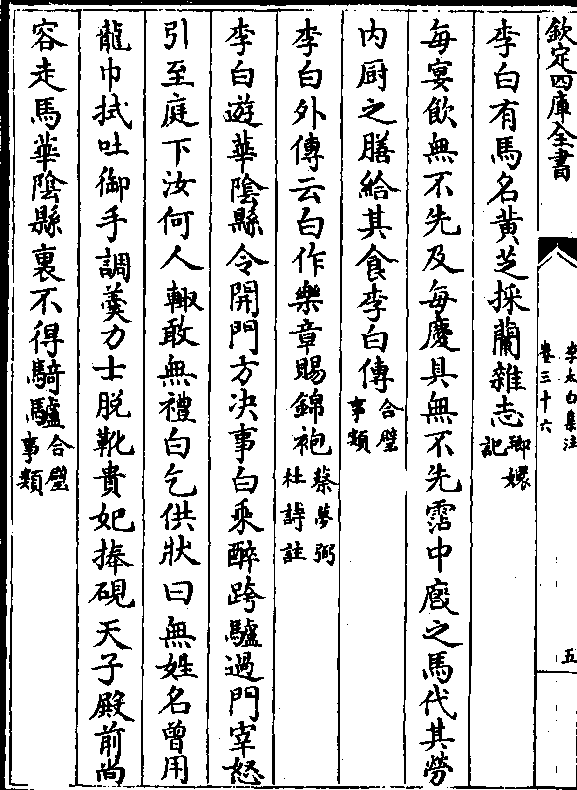 欽定四庫全書
李太白集注
卷三十六
五
李白有馬名黄芝採蘭雜志瑯嬛記
每宴飲無不先及每慶具無不先霑中廏之馬代其勞
内厨之膳給其食李白傳合璧事類
李白外傳云白作樂章賜錦袍蔡夢弼杜詩註
李白遊華陰縣令開門方决事白乘醉跨驢過門宰怒
引至庭下汝何人輙敢無禮白乞供狀曰無姓名曾用
龍巾拭吐御手調羮力士脱靴貴妃捧硯天子殿前尚
容走馬華陰縣裏不得騎驢合璧事類